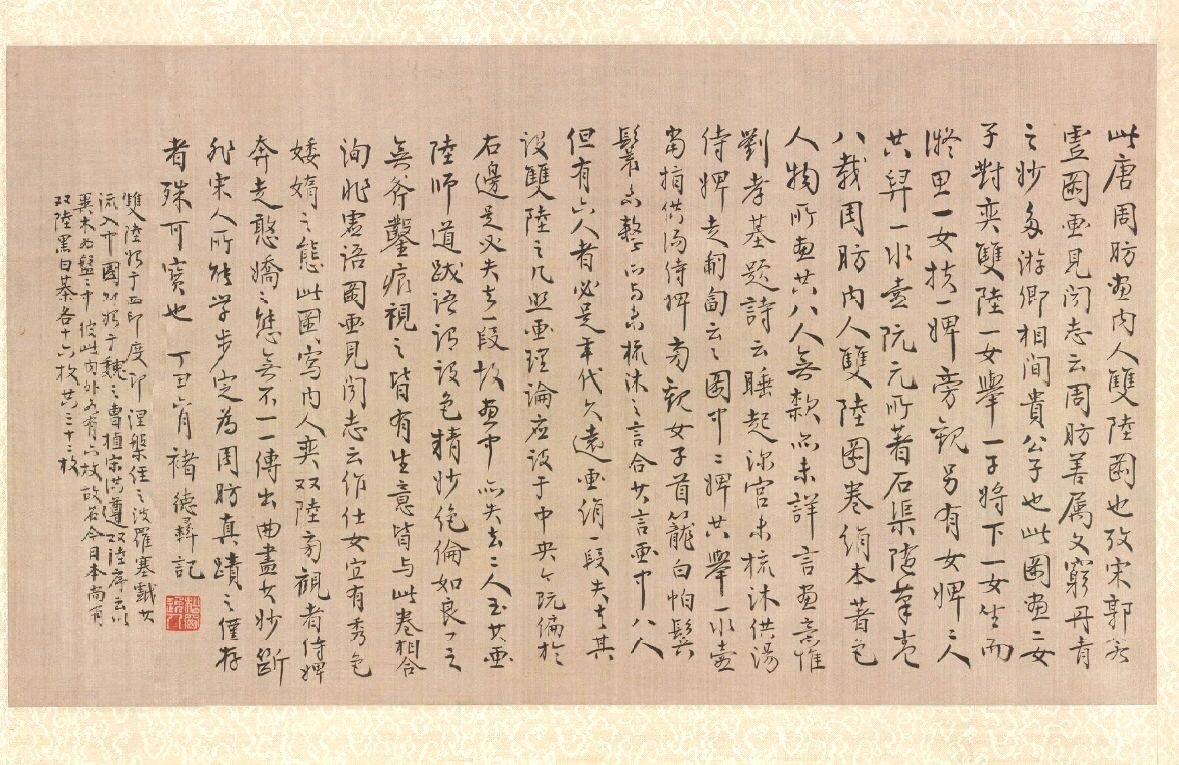 此唐周昉畫内人雙陸圖也攷宋郭若
虛圖画見聞志云周昉善属文窮丹青
之妙多游卿相间貴公子也此圖畫二女
子對奕雙陸一女舉一子將下一女坐而
凝思一女扶一婢旁觀另有女婢二人
共舁一水壺阮元所著石渠随筆卷
八载周昉内人雙陸圖卷絹本著色
人物所畫共八人無款而未詳言畫意惟
劉孝基題詩云睡起深宫未梳沐供湯
侍婢走匍匐云云圖中二婢共舉一水壺
當指供湯侍婢而觀女子首籠白帕鬓
鬟亦整而与未梳沐之言合其言画中八人
但有六人者必是年代久遠画绢一段失去其
設雙陸之几照画理論应設于中央今既偏於
右邊是必失去一段故画中而失去二人至其画
陸师道跋语谓設色精妙绝倫如良工之
無斧鑿痕視之皆有生意皆与此卷相合
洵非虚语圖画見聞志云作仕女宜有秀色
婑媠之態此圖寫内人奕双陸旁觀者侍婢
奔走憨嬌之態無不一一傳出曲盡其妙斷
非宋人所能学步定為周昉真蹟之僅存
者殊可寶也 丁丑 褚德彝記
雙陸始于西印度即涅槃经之波羅塞戲其
流入中國则始于魏之曹植宋洪遵双陸序云以
異木为盤盤中彼此内外各有六故故名今日本尚有
双陸黑白棊各十六枚共三十二枚